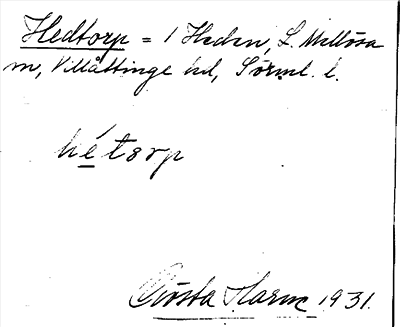 Hedtorp = 1 Heden, L. Mellösa
sn, Villåttinge hd, Sörml. l.
hétorp
Gösta Harm 1931.